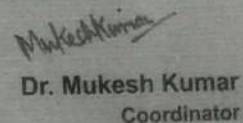 Mukesh Kumar
Dr. Mukesh Kumar
Coordinator